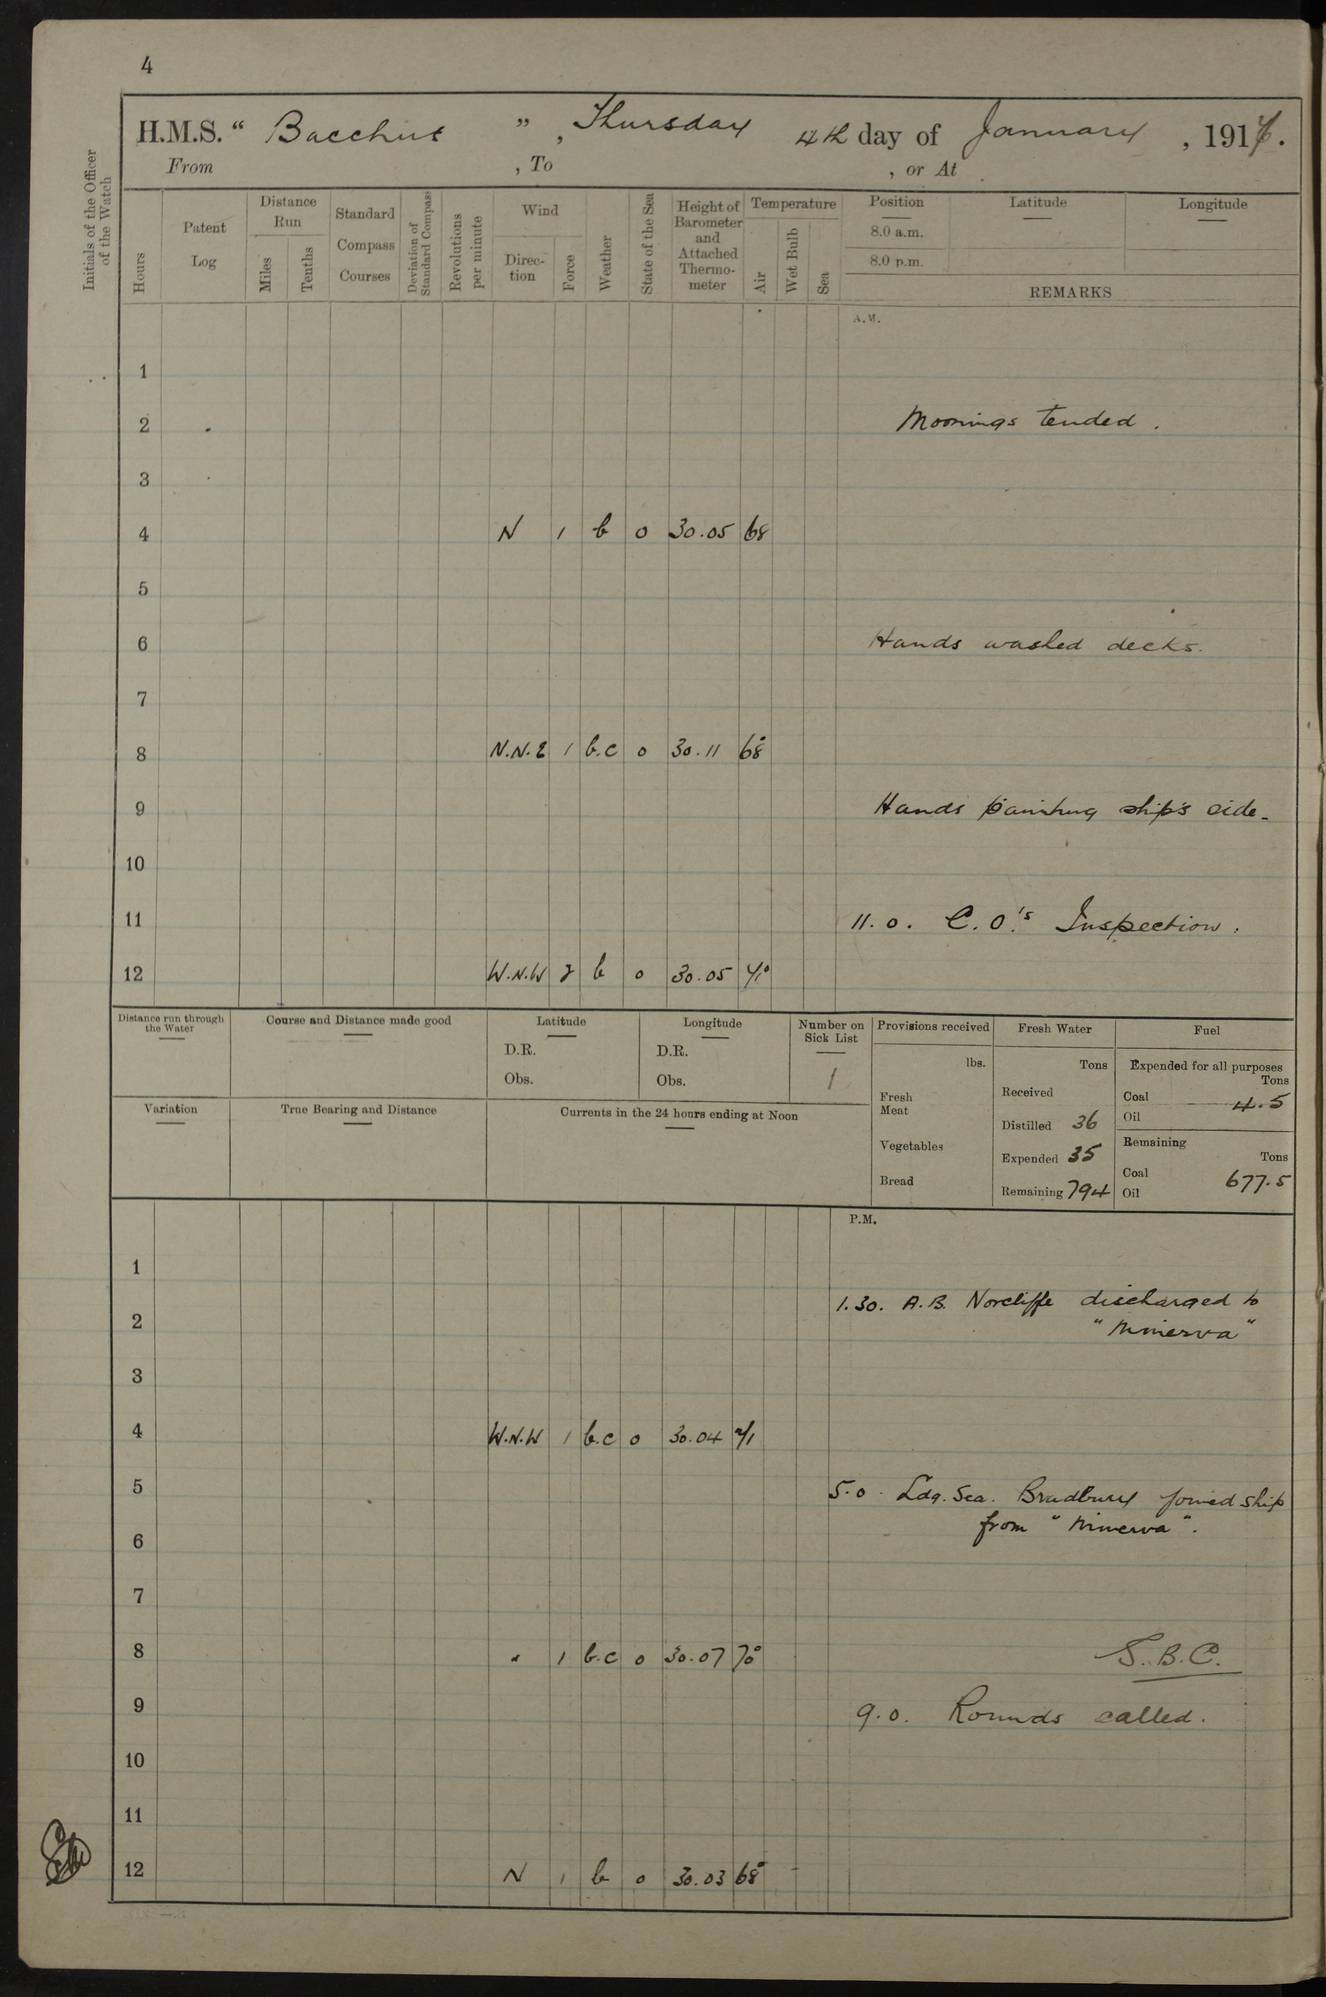 4
H.M.S. " Bacchus ", Thursday 4th day of January, 1917.
From , To , or At
Initials of the Officer of the Watch
Hours
Patent Log
Distance Run
Miles
Tenths
Standard Compass Courses
Deviation of Standard Compass
Revolutions per minute
Wind
Direction
Force
Weather
State of the Sea
Height of Barometer and Attached Thermometer
Temperature
Air
Wet Bulb
Sea
Position Latitude Longitude
8.0 a.m.
8.0 p.m.
REMARKS
A.M.
1
2 Moorings tended.
3
4 N 1 b 0 30.05 68
5
6 Hands washed decks.
7
8 N.N.E 1 b.c 0 30.11 68°
9 Hands painting ship's side.
10
11 11.0. C.O.'s Inspection.
12 W.N.W 2 b 0 30.05 71°
Distance run through the Water
Course and Distance made good
Latitude
D.R.
Obs.
Longitude
D.R.
Obs.
Number on Sick List
1
Variation
True Bearing and Distance
Currents in the 24 hours ending at Noon
Provisions received
lbs.
Fresh Meat
Vegetables
Bread
Fresh Water
Tons
Received
Distilled 36
Expended 35
Remaining 794
Fuel
Expended for all purposes
Tons
Coal 4.5
Oil
Remaining
Tons
Coal 677.5
Oil
P.M.
1
1.30. A.B. Norcliffe discharged to
2 "Minerva"
3
4 W.N.W 1 b.c 0 30.04 71
5 5.0. Ldg. Sea. Bradbury joined ship
from "Minerva".
6
7
8 " 1 b.c 0 30.07 70° S.B.C.
9 9.0. Rounds called.
10
11
12 N 1 b 0 30.03 68°